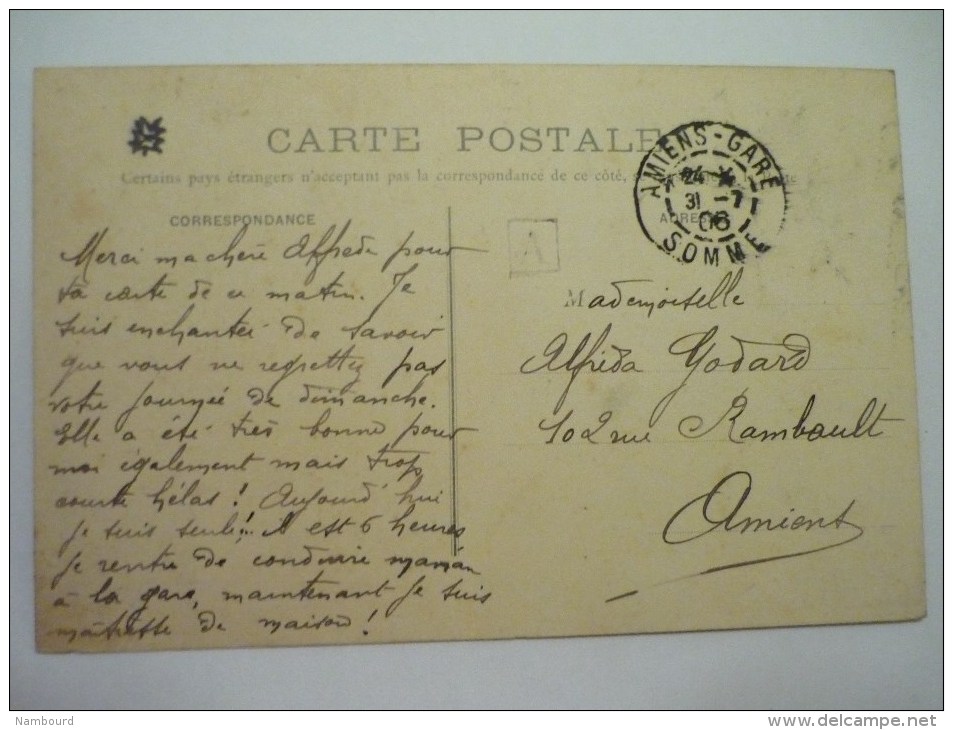 CARTE POSTALE
Certains pays étrangers n'acceptant pas la correspondance de ce côté,
CORRESPONDANCE
ADRESSE
AMIENS-GARE
24
31 -7
06
SOMME
A
Merci ma chère Alfréda pour
ta carte de ce matin. Je
suis enchantée de savoir
que vous ne regrettez pas
votre journée de dimanche.
Elle a été très bonne pour
moi également mais trop
courte hélas! Aujourd'hui
je suis seule!.. Il est 6 heures
je rentre de conduire maman
à la gare, maintenant je suis
maîtresse de maison!
Mademoiselle
Alfréda Godard
102 rue Rambault
Amiens
Nambourd
delcampe.net